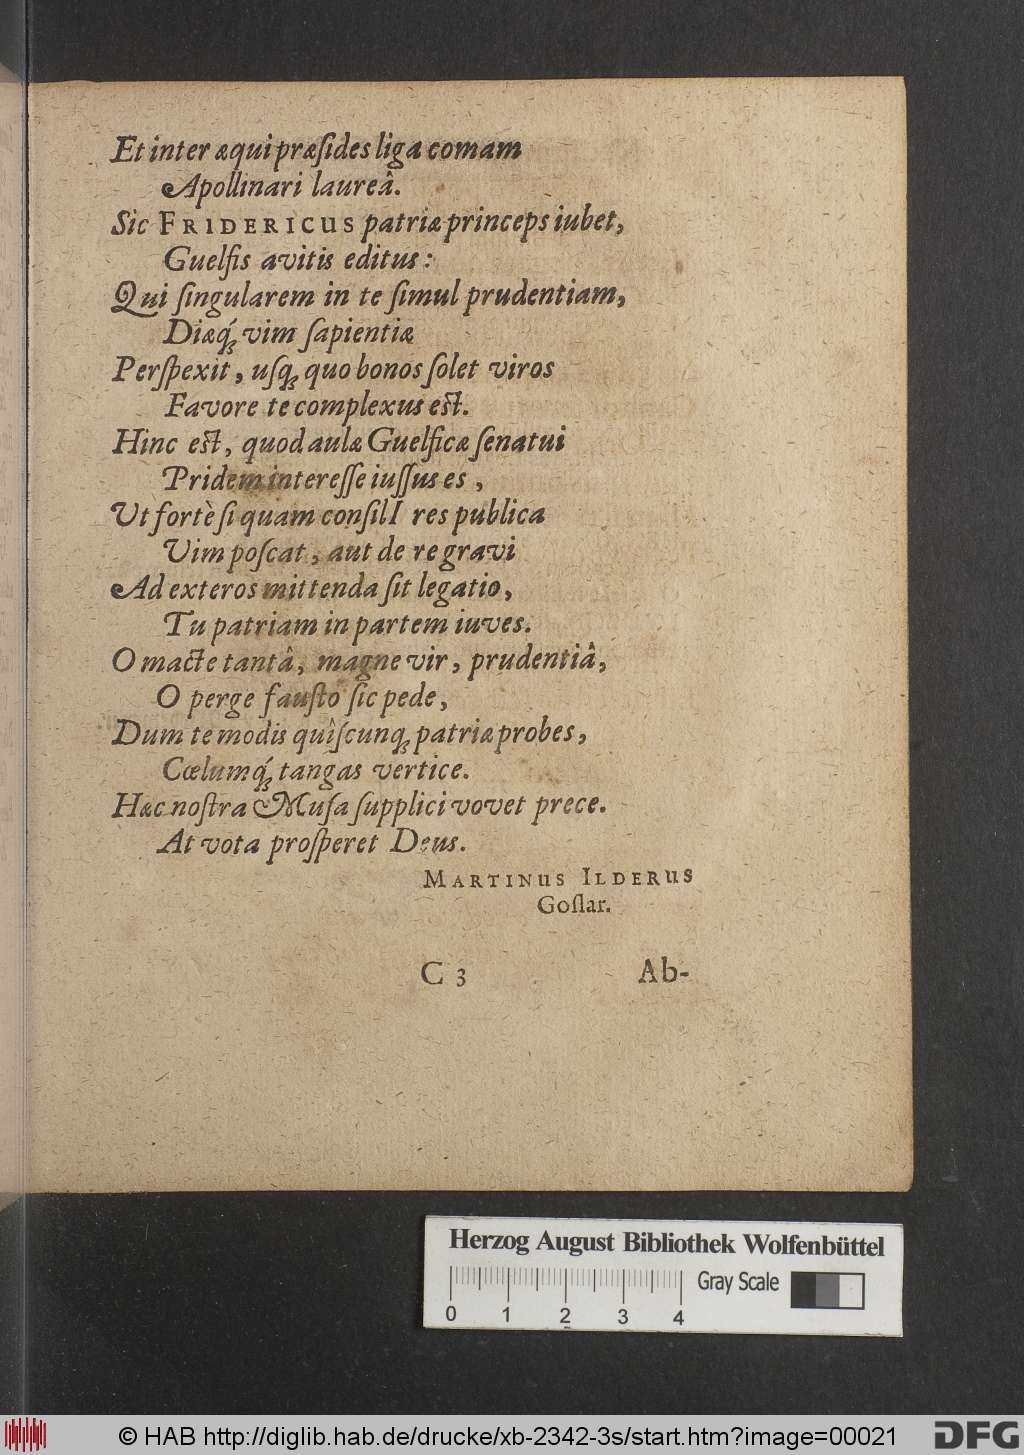 Et inter æqui præſides liga comam
Apollinari laureâ.
Sic FRIDERICUS patriæ princeps iubet,
Guelfis avitis editus:
Qui ſingularem in te ſimul prudentiam,
Diæq́; vim ſapientiæ
Perſpexit, uſq; quo bonos ſolet viros
Favore te complexus eſt.
Hinc eſt, quod aulæ Guelficæ ſenatui
Pridem intereſſe iuſſus es,
Ut fortè ſi quam conſilI res publica
Vim poſcat, aut de re gravi
Ad exteros mittenda ſit legatio,
Tu patriam in partem iuves.
O macte tantâ, magne vir, prudentiâ,
O perge fauſto ſic pede,
Dum te modis quîſcunq; patria probes,
Cœlumq́; tangas vertice.
Hæc noſtra Muſa ſupplici vovet prece.
At vota proſperet Deus.
MARTINUS ILDERUS
Goſlar.
C 3 Ab-
Herzog August Bibliothek Wolfenbüttel
Gray Scale
0 1 2 3 4
© HAB http://diglib.hab.de/drucke/xb-2342-3s/start.htm?image=00021
DFG